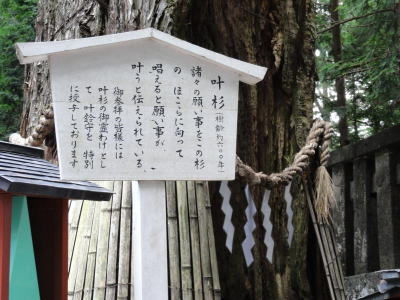 叶杉（樹齢約六〇〇年）
諸々の願い事をこの杉
の ほこらに向って
唱えると願い事が、
叶うと伝えられている
御参拝の皆様には
叶杉の御霊わけとし
て、叶鈴守を 特別
に授与しております